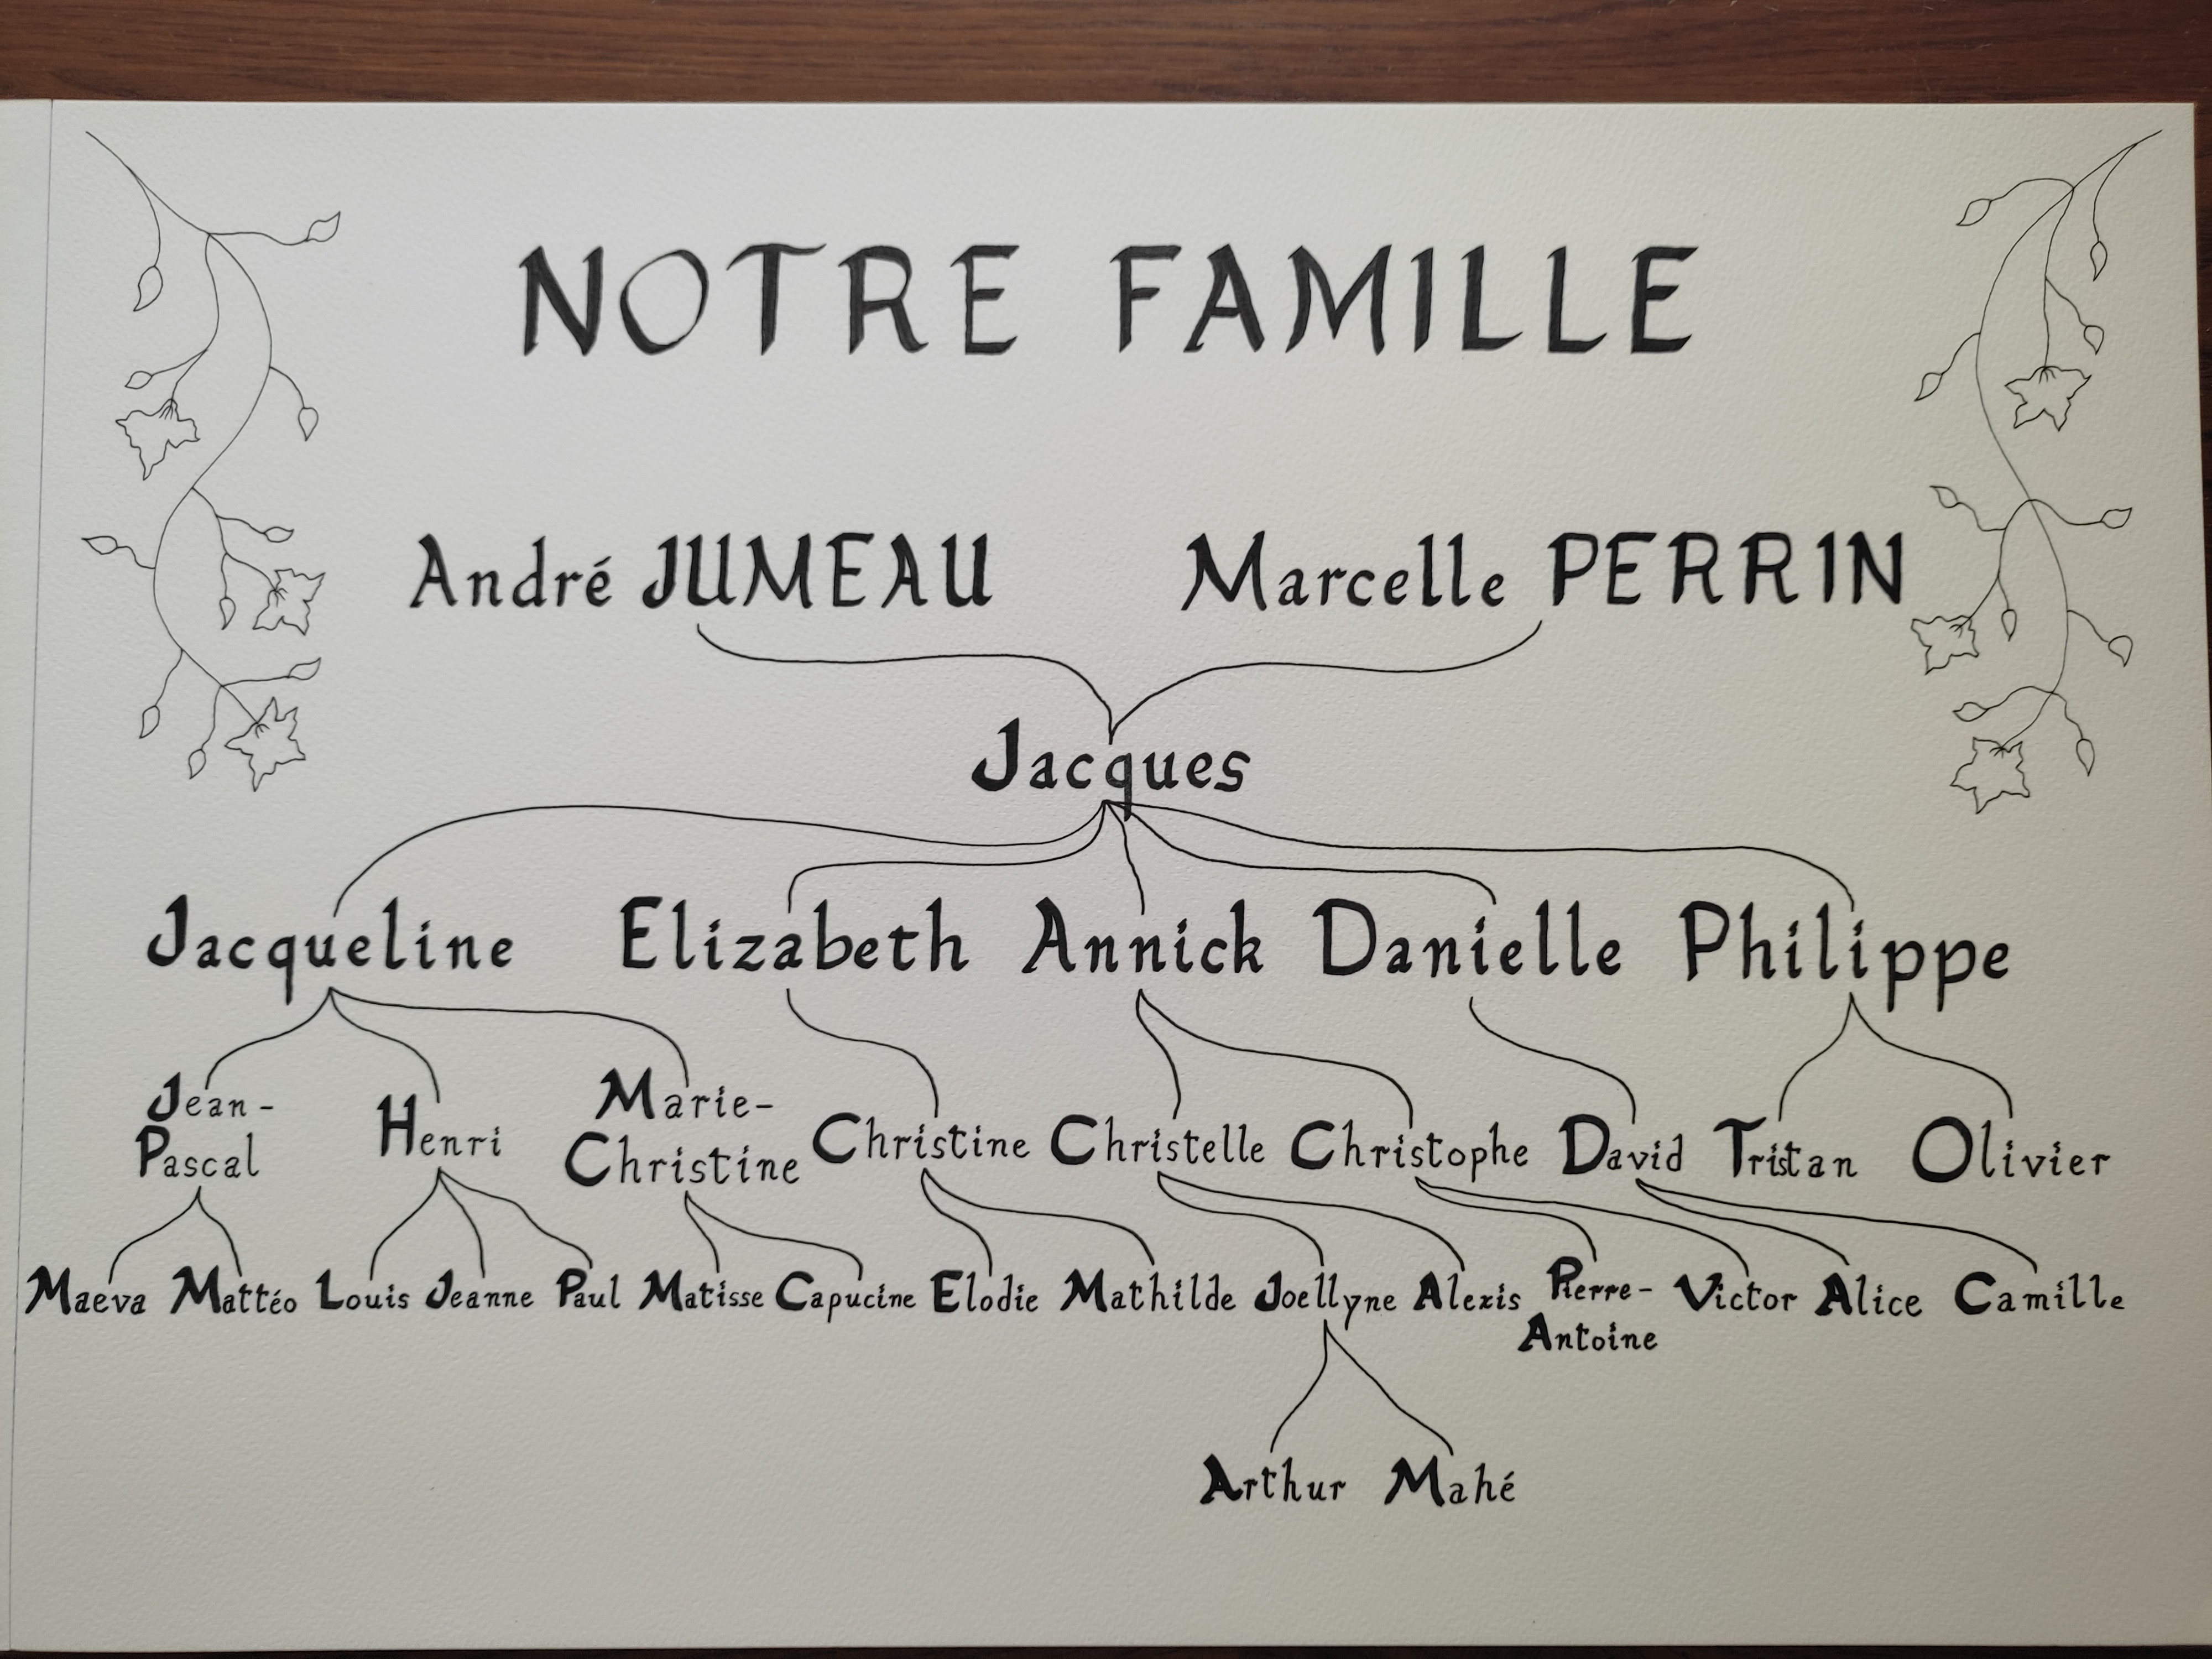 NOTRE FAMILLE
André JUMEAU Marcelle PERRIN
Jacques
Jacqueline Elizabeth Annick Danielle Philippe
Jean-
Pascal
Henri
Marie-
Christine
Christine Christelle Christophe David Tristan Olivier
Maeva Mattéo Louis Jeanne Paul Matisse Capucine Elodie Mathilde Joellyne Alexis
Pierre-
Antoine
Victor Alice Camille
Arthur Mahé